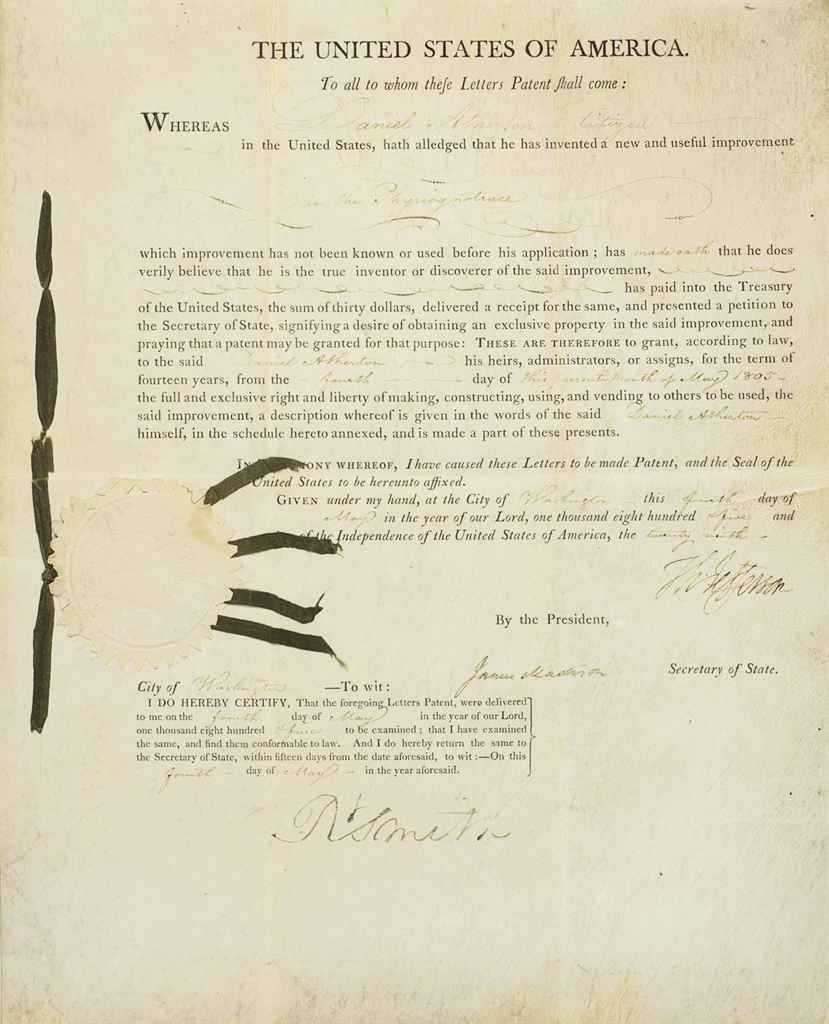 THE UNITED STATES OF AMERICA.
To all to whom theſe Letters Patent ſhall come :
WHEREAS Daniel Atherton a Citizen
in the United States, hath alledged that he has invented a new and useful improvement
in the Physiognotrace
which improvement has not been known or used before his application ; has made oath that he does
verily believe that he is the true inventor or discoverer of the said improvement,
has paid into the Treasury
of the United States, the sum of thirty dollars, delivered a receipt for the same, and presented a petition to
the Secretary of State, signifying a desire of obtaining an exclusive property in the said improvement, and
praying that a patent may be granted for that purpose: THESE ARE THEREFORE to grant, according to law,
to the said Daniel Atherton his heirs, administrators, or assigns, for the term of
fourteen years, from the fourth day of this present month of May 1805
the full and exclusive right and liberty of making, constructing, using, and vending to others to be used, the
said improvement, a description whereof is given in the words of the said Daniel Atherton
himself, in the schedule hereto annexed, and is made a part of these presents.
IN MONY WHEREOF, I have caused these Letters to be made Patent, and the Seal of the
United States to be hereunto affixed.
GIVEN under my hand, at the City of Washington this fourth day of
May in the year of our Lord, one thousand eight hundred & five and
of the Independence of the United States of America, the twenty ninth
Th Jefferson
By the President,
James Madison Secretary of State.
City of Washington —To wit :
I DO HEREBY CERTIFY, That the foregoing Letters Patent, were delivered
to me on the fourth day of May in the year of our Lord,
one thousand eight hundred & five to be examined ; that I have examined
the same, and find them conformable to law. And I do hereby return the same to
the Secretary of State, within fifteen days from the date aforesaid, to wit :—On this
fourth day of May in the year aforesaid.
Rt Smith